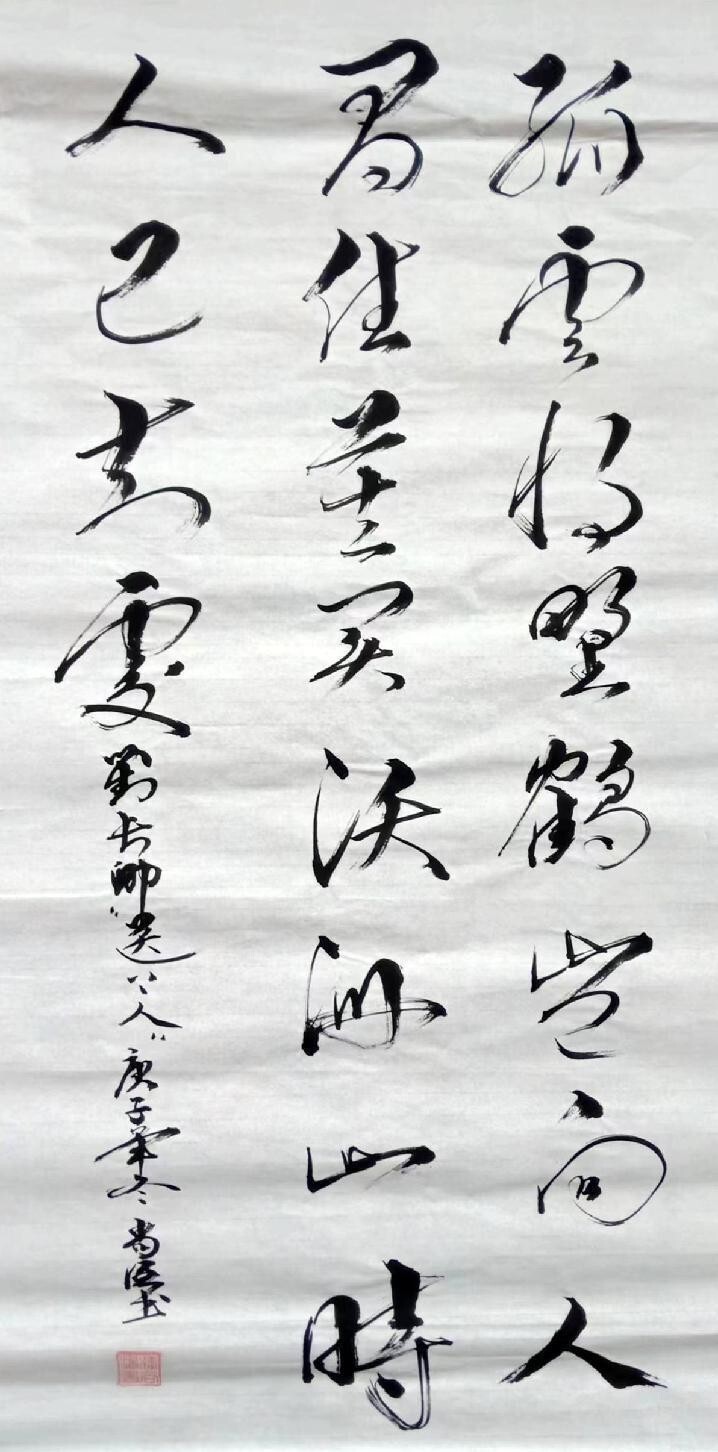 孤雲將野鶴豈向人
間住莫買沃洲山時
人已知處劉長卿“送上人”庚子年冬尚書